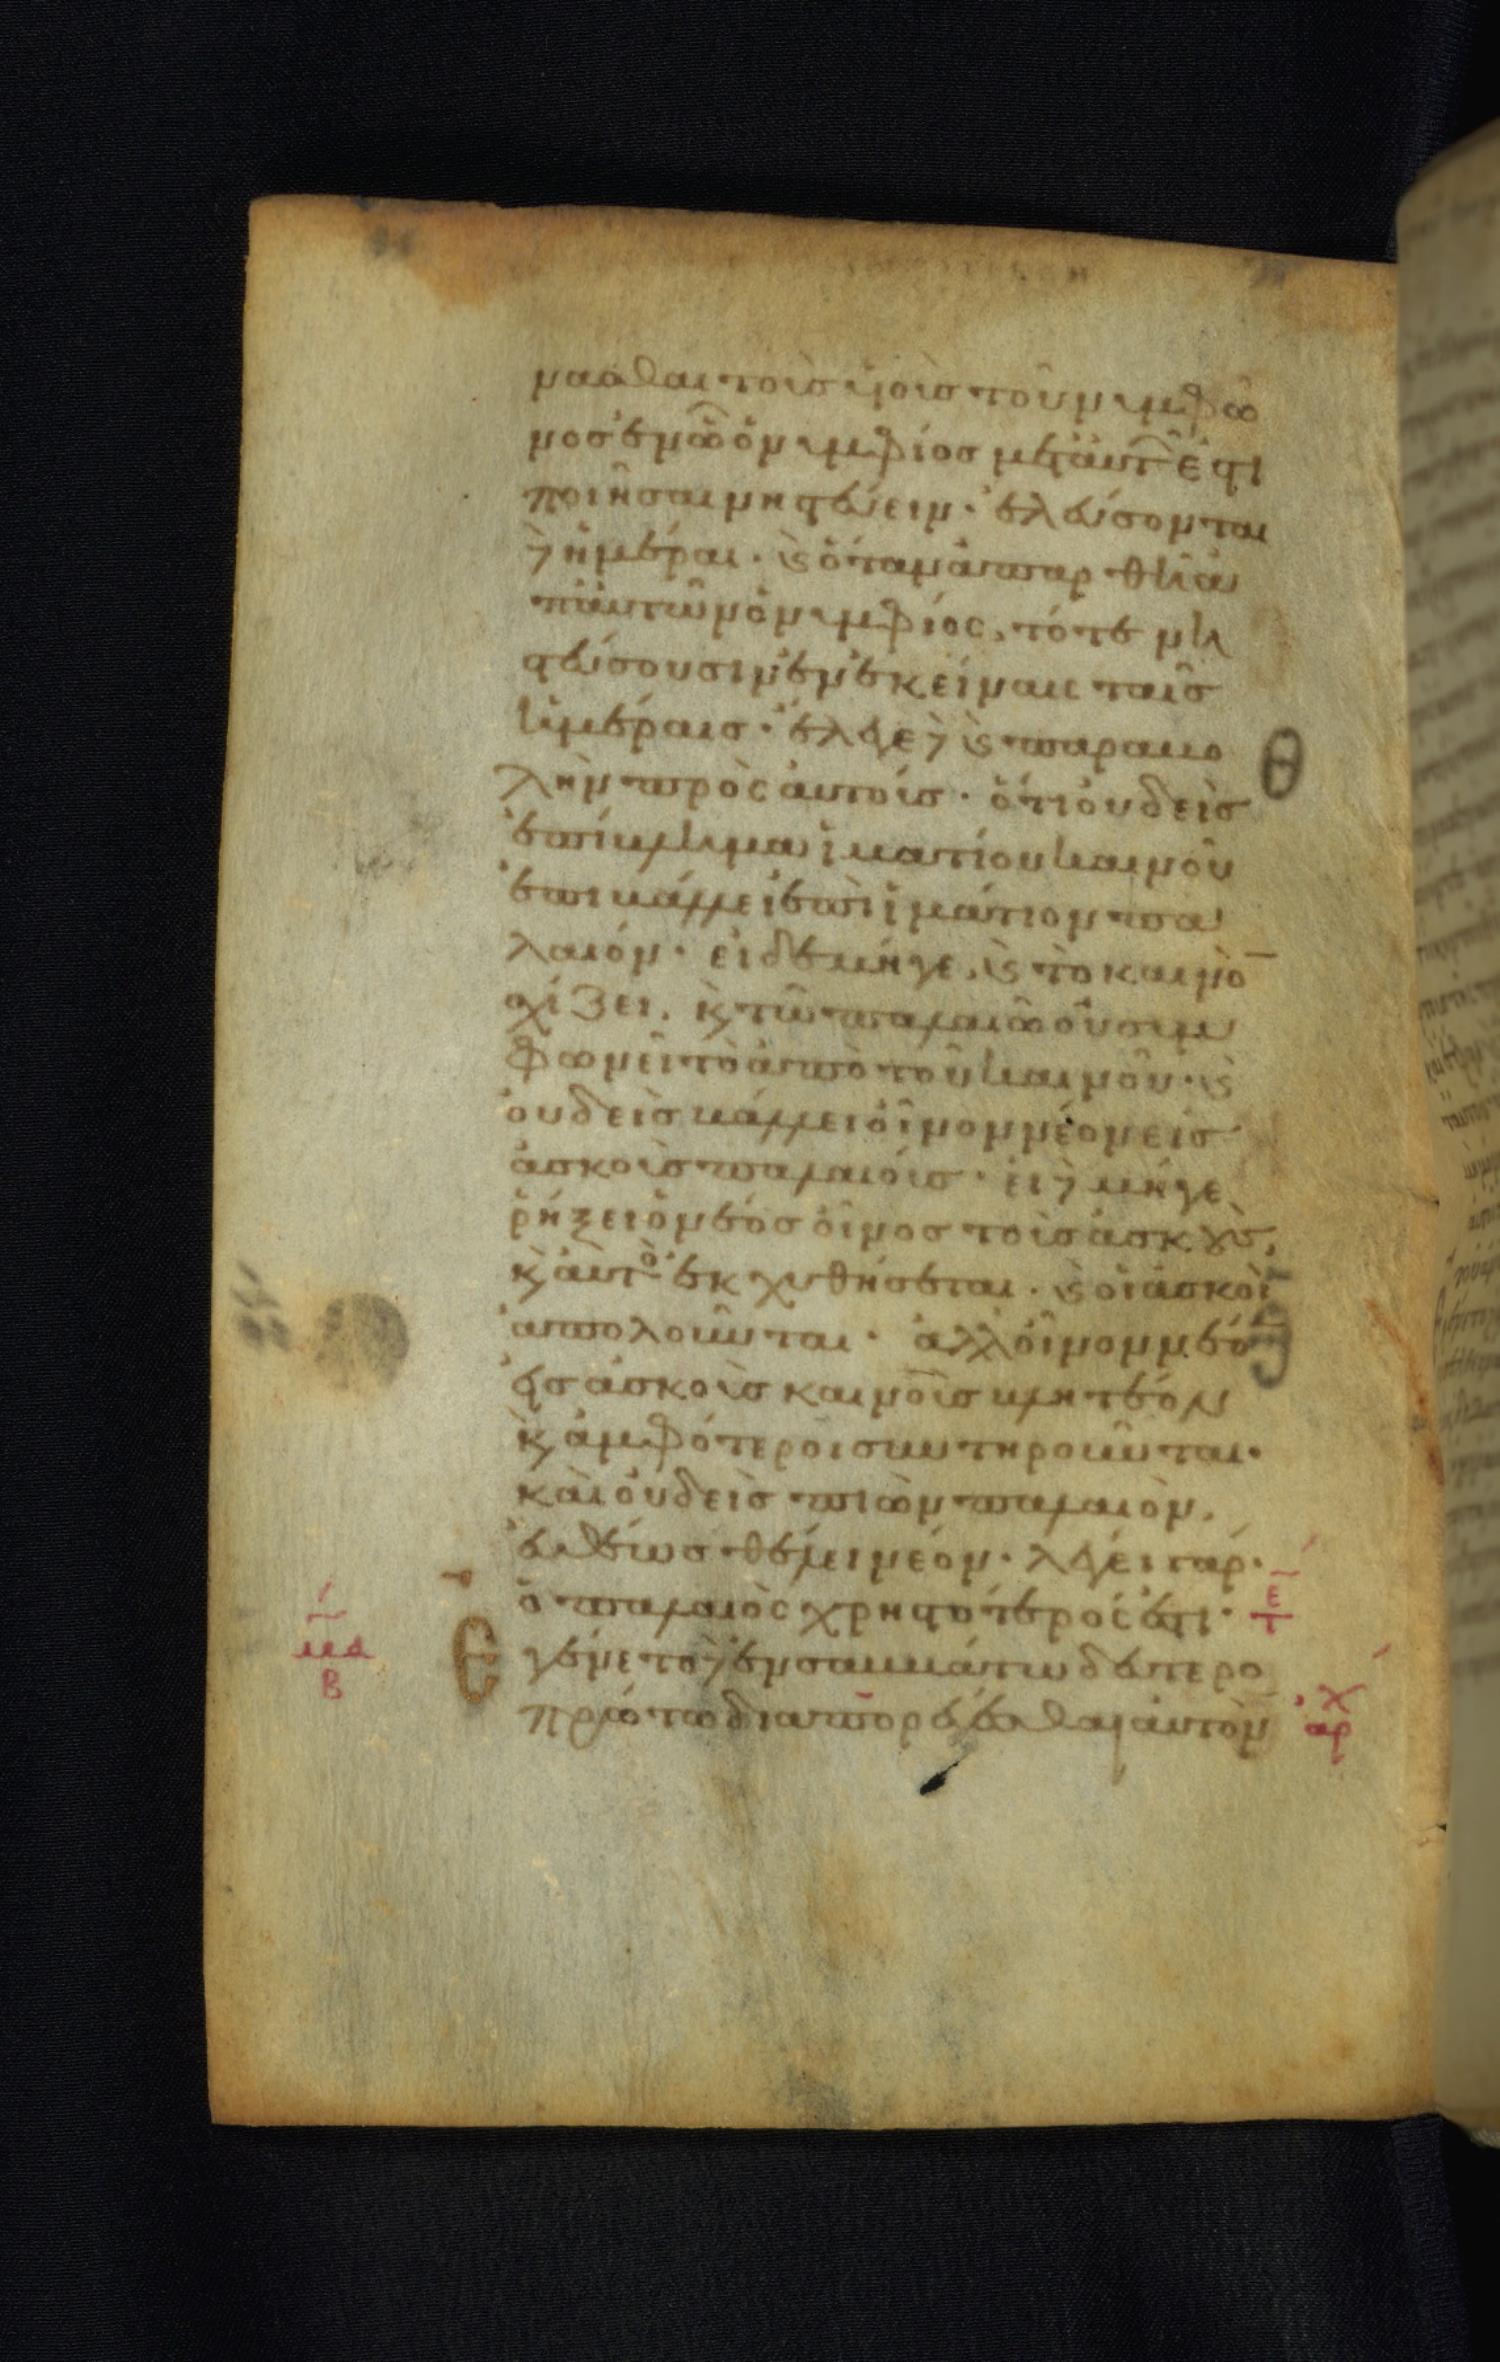 μασθαι τοὺς υἱοὺς τοῦ νυμφῶ
νος ἐν ᾧ ὁ νυμφίος μετ αὐτῶν ἐστι
ποιῆσαι νηστεύειν· ἐλεύσονται
δὲ ἡμέραι· καὶ ὅταν ἀπαρθῆ ἀ
π αὐτῶν ὁ νυμφίος, τότε νη
στεύσουσιν ἐν ἐκείναις ταῖς
ἡμέραις· ἔλεγε δὲ καὶ παραβο
λὴν πρὸς αὐτοὺς· ὅτι οὐδεὶς
ἐπίβλημα ἱματίου καινοῦ
ἐπιβάλλει ἐπὶ ἱμάτιον πα
λαιόν· εἰ δὲ μήγε, καὶ τὸ καινὸ
σχίζει, καὶ τῷ παλαιῷ οὐ συμ
φωνεῖ τὸ ἀπὸ τοῦ καινοῦ· καὶ
οὐδεὶς βάλλει οἶνον νέον εἰς
ἀσκοὺς παλαιούς· εἰ δὲ μήγε
ῥήξει ὁ νέος οἶνος τοὺς ἀσκούς,
καὶ αὐτὸς ἐκχυθήσεται· καὶ οἱ ἀσκοὶ
ἀπολοῦνται· ἀλλ οἶνον νέο
εἰς ἀσκοὺς καινοὺς βλητέον
καὶ ἀμφότεροι συντηροῦνται·
καὶ οὐδεὶς πιὼν παλαιὸν,
εὐθέως θέλει νέον· λέγει γάρ·
ὁ παλαιὸς χρηστότερός ἐστι·
Ἐγένετο δὲ ἐν σαββάτω δευτερο
πρώτω διαπορεύεσθαι αὐτὸν